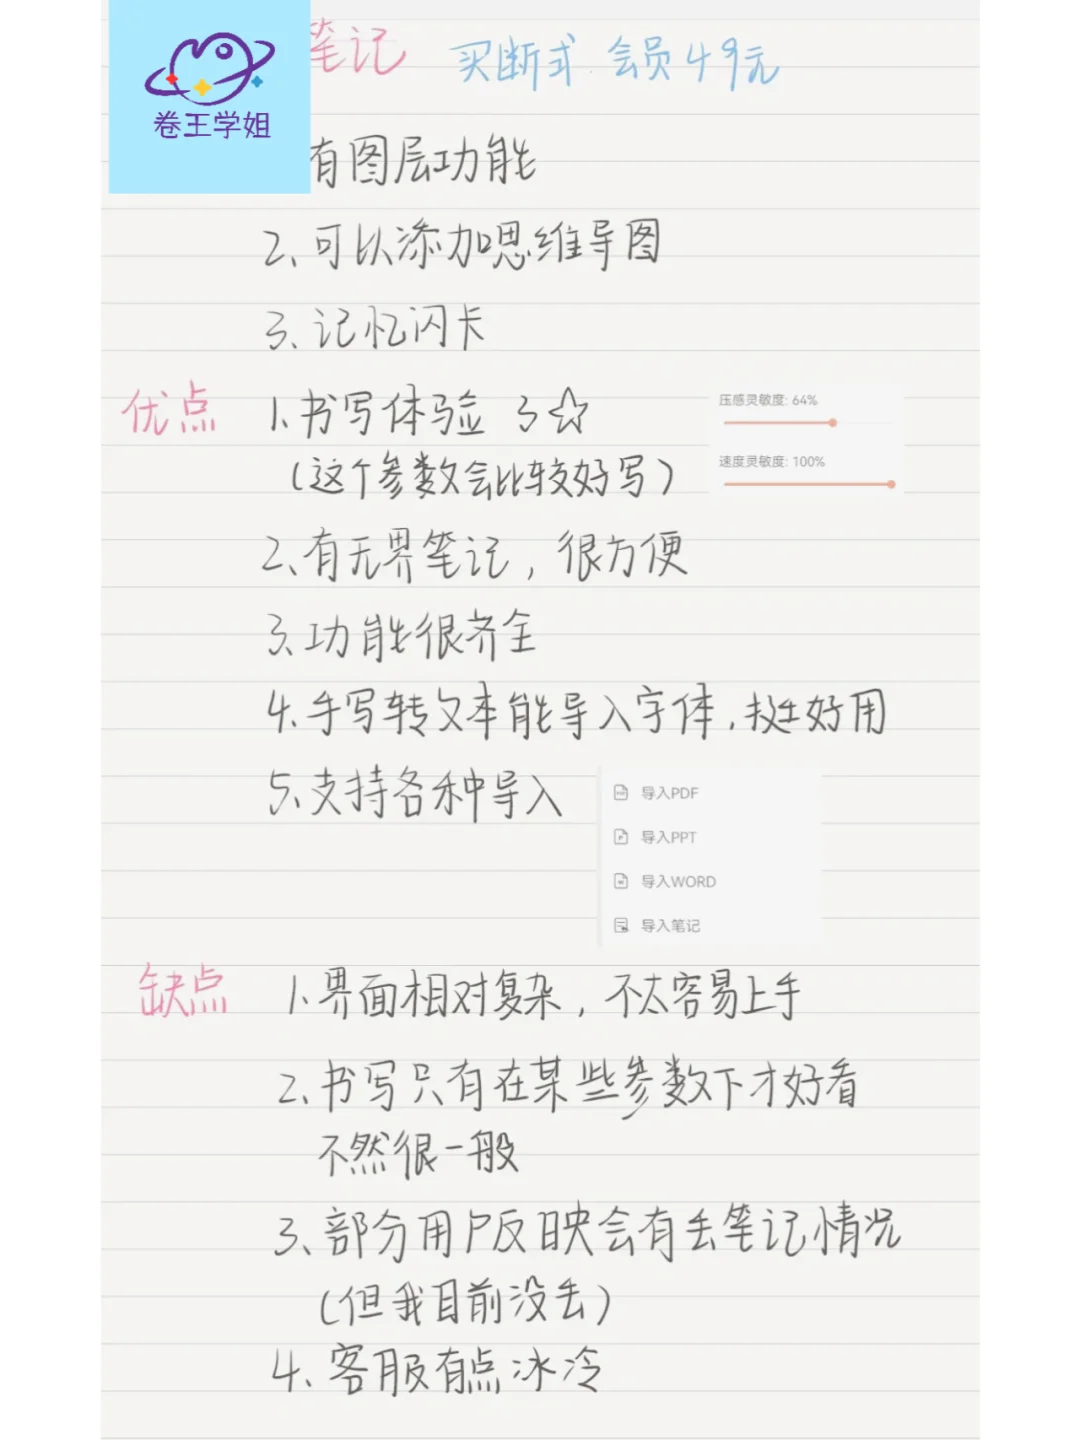 卷王学姐
笔记 买断式 会员49元
有图层功能
2、可以添加思维导图
3、记忆闪卡
优点 1、书写体验 3☆
压感灵敏度: 64%
(这个参数会比较好写)
速度灵敏度: 100%
2、有无界笔记，很方便
3、功能很齐全
4、手写转文本能导入字体，挺好用
5、支持各种导入
导入PDF
导入PPT
导入WORD
导入笔记
缺点 1、界面相对复杂，不太容易上手
2、书写只有在某些参数下才好看
不然很一般
3、部分用户反映会有丢笔记情况
(但我目前没丢)
4、客服有点冰冷